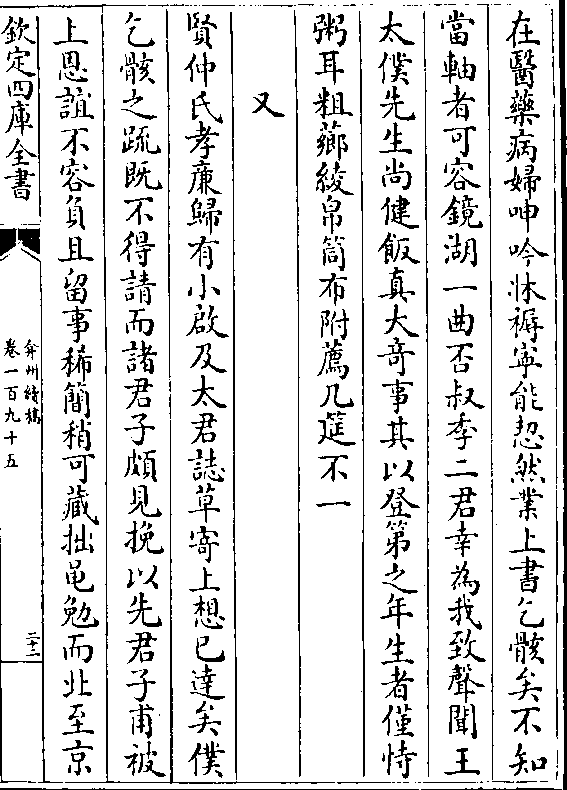 在醫藥病婦呻吟牀褥寧能恝然業上書乞骸矣不知
當軸者可容鏡湖一曲否叔季二君幸為我致聲聞王
太僕先生尚健飯真大奇事其以登第之年生者僅恃
粥耳粗薌綾帛筒布附薦几筵不一
又
賢仲氏孝廉歸有小啟及太君誌草寄上想已達矣僕
乞骸之疏既不得請而諸君子頗見挽以先君子甫被
上恩誼不容負且留事稀簡稍可藏拙黽勉而北至京
欽定四庫全書
弇州續稿
卷一百九十五
二十二